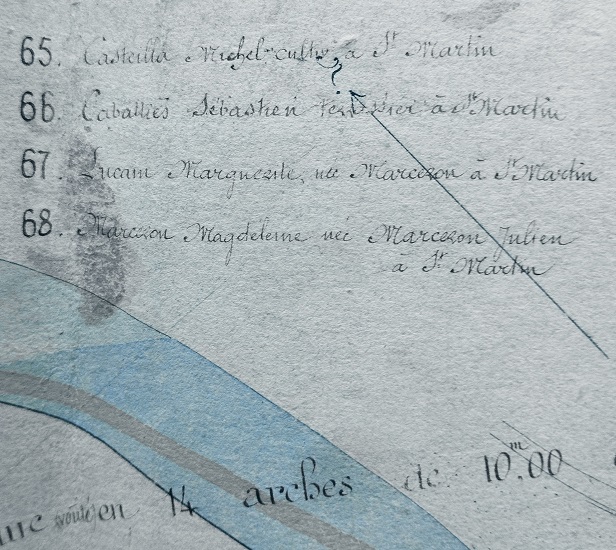 65. Casteilla Michel cultr à St Martin
66. Caballiès Sébastien à St Martin
67. Lucam Marguerite, née Marceron à St Martin
68. Marceron Magdeleine née Marceron Julien
à St Martin
voutée en 14 arches de 10m,00